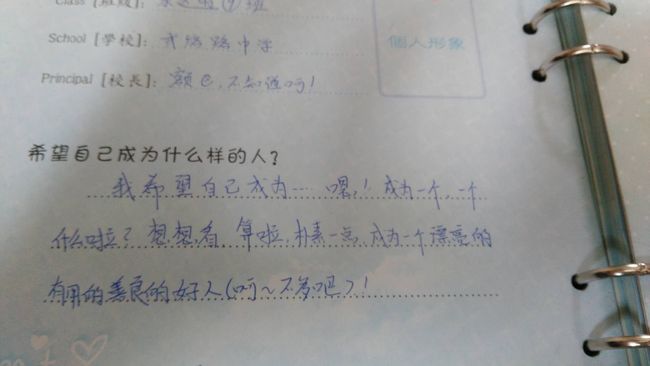 Class [班級]: 班
School [學校]: 路中学
個人形象
Principal [校長]: 额@,不知道呵!
希望自己成为什么样的人?
我希望自己成为… 嗯,! 成为一个,一个
什么啦? 想想看 算啦,朴素一点,成为一个漂亮的
有用的善良的好人(呵~不多吧)!